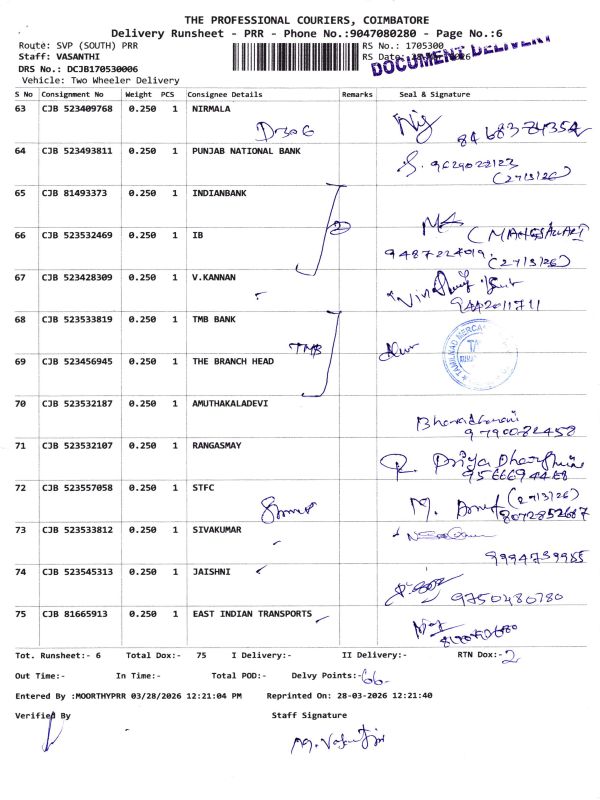 THE PROFESSIONAL COURIERS, COIMBATORE
Delivery Runsheet - PRR - Phone No.:9047080280 - Page No.:6
Route: SVP (SOUTH) PRR
RS No.: 1705300
Staff: VASANTHI
RS Date:
DOCUMENT DELIVERY
DRS No.: DCJB170530006
Vehicle: Two Wheeler Delivery
S No Consignment No Weight PCS Consignee Details Remarks Seal & Signature
63 CJB 523409768 0.250 1 NIRMALA
64 CJB 523493811 0.250 1 PUNJAB NATIONAL BANK
9629022123
(27/3/26)
65 CJB 81493373 0.250 1 INDIANBANK
2
66 CJB 523532469 0.250 1 IB
(27/3/26)
67 CJB 523428309 0.250 1 V.KANNAN
9442011711
68 CJB 523533819 0.250 1 TMB BANK
TMB
69 CJB 523456945 0.250 1 THE BRANCH HEAD
70 CJB 523532187 0.250 1 AMUTHAKALADEVI
9790082458
71 CJB 523532107 0.250 1 RANGASMAY
72 CJB 523557058 0.250 1 STFC
(27/3/26)
8072852687
73 CJB 523533812 0.250 1 SIVAKUMAR
74 CJB 523545313 0.250 1 JAISHNI
9750480780
75 CJB 81665913 0.250 1 EAST INDIAN TRANSPORTS
Tot. Runsheet:- 6 Total Dox:- 75 I Delivery:- II Delivery:- RTN Dox:- 2
Out Time:- In Time:- Total POD:- Delvy Points:- 66
Entered By :MOORTHYPRR 03/28/2026 12:21:04 PM Reprinted On: 28-03-2026 12:21:40
Verified By Staff Signature